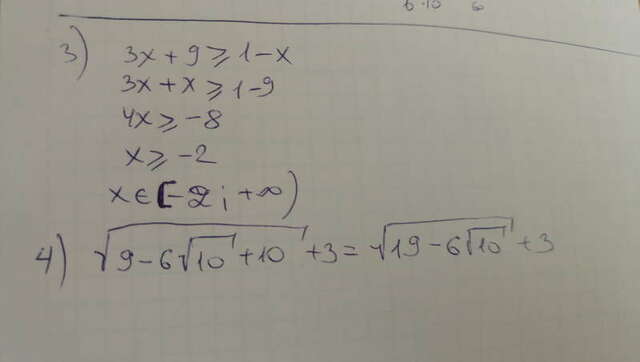 6·10 6
3) 3x + 9 ⩾ 1 - x
3x + x ⩾ 1 - 9
4x ⩾ -8
x ⩾ -2
x ∈ [-2; +∞)
4) √(9 - 6√10 + 10) + 3 = √(19 - 6√10) + 3